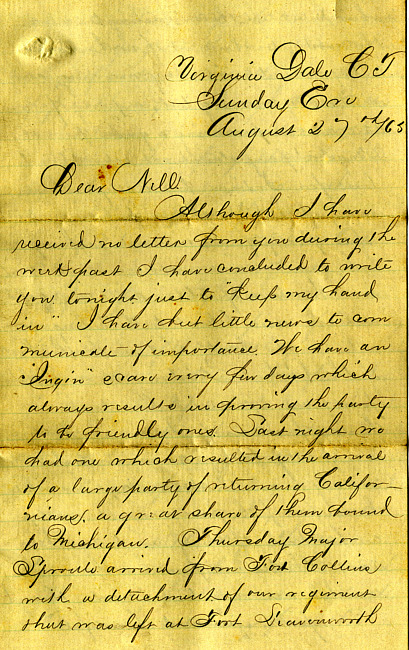 Virginia Dale C T
Sunday Eve
August 27nd/65
Dear Nell
Although I have
received no letter from you during the
week past I have concluded to write
you tonight just to "keep my hand
in" I have but little news to com
municate of importance. We have an
"Ingin" scare every few days which
always results in proving the party
to be friendly ones. Last night we
had one which resulted in the arrival
of a large party of returning Califor-
nians, a great share of them bound
to Michigan. Thursday Major
Sproule arrived from Fort Collins
with a detachment of our regiment
that was left at Fort Leavenworth